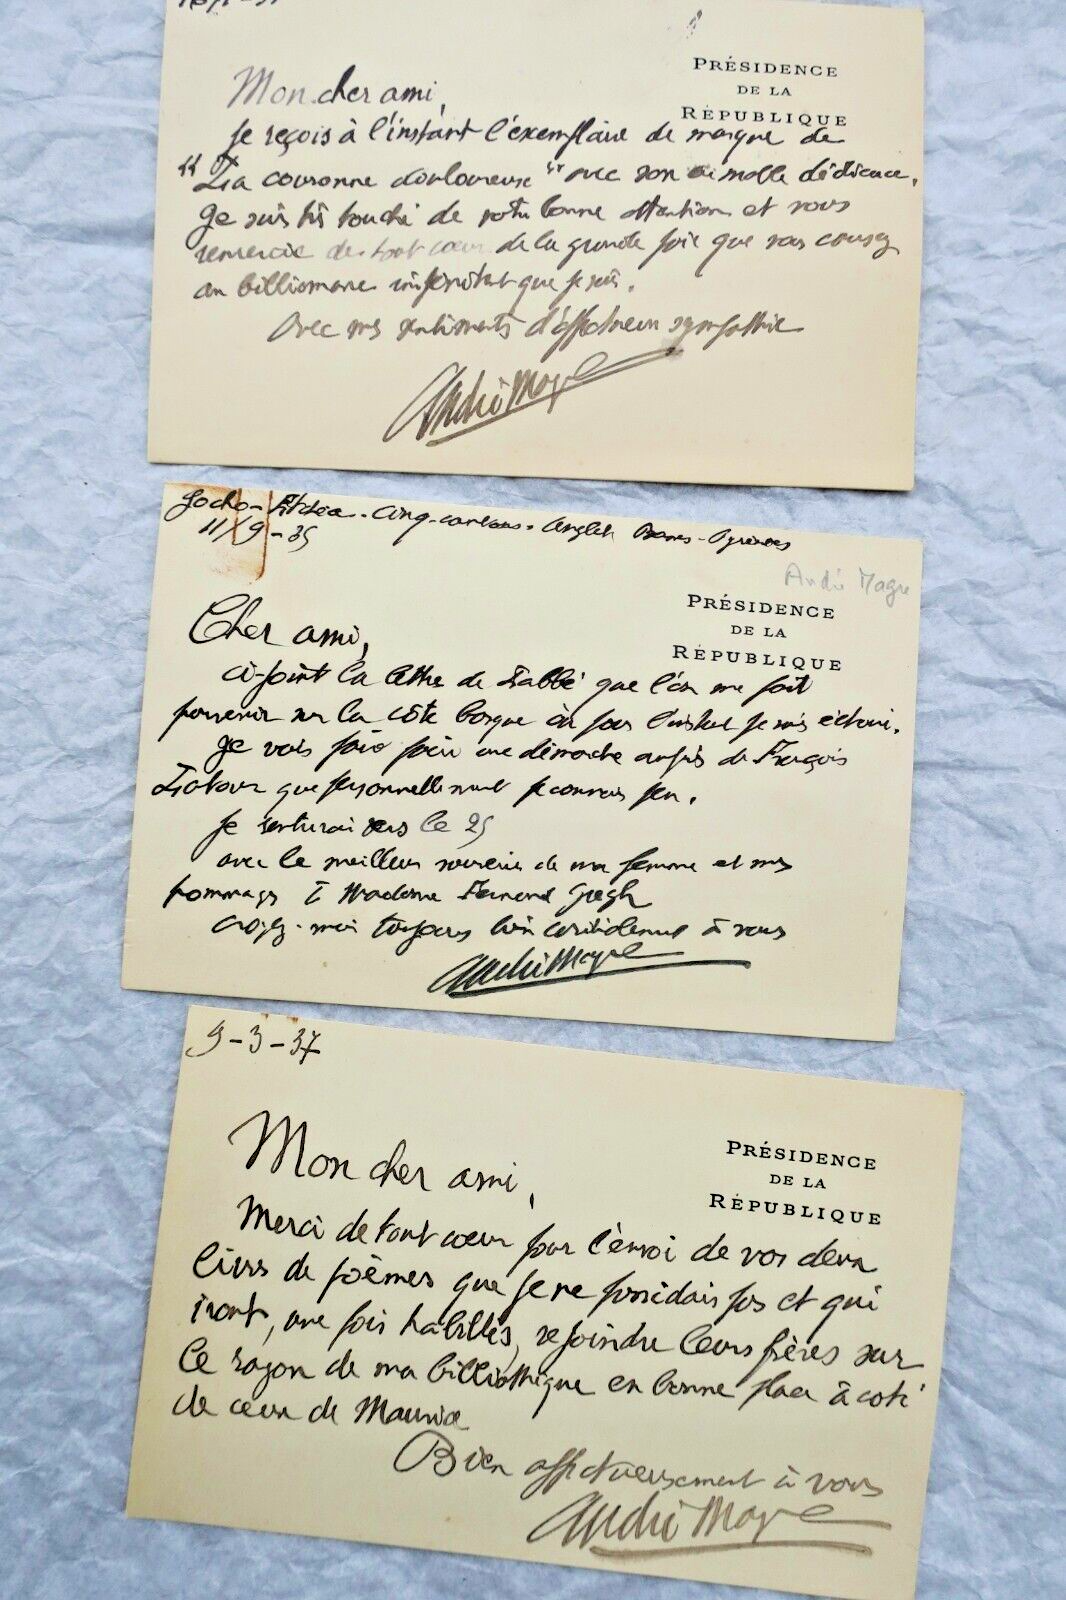 PRÉSIDENCE
DE LA
RÉPUBLIQUE
Mon cher ami,
je reçois à l'instant l'exemplaire de marque de
"La couronne douloureuse" avec son aimable dédicace.
Je suis très touché de votre bonne attention et vous
remercie de tout cœur de la grande joie que vous causez
au bibliomane impénitent que je suis.
Avec mes sentiments d'affectueuse sympathie
André Magre
11/9-35
André Magre
PRÉSIDENCE
DE LA
RÉPUBLIQUE
Cher ami,
ci-joint la lettre de Labbé que l'on me fait
parvenir sur la côte basque où pour l'instant je suis échoué.
Je vais faire faire une démarche auprès de François
Latour que personnellement je connais peu.
Je rentrerai vers le 25
avec le meilleur souvenir de ma femme et mes
hommages à Madame Fernand Gregh
croyez-moi toujours bien cordialement à vous
André Magre
9-3-37
PRÉSIDENCE
DE LA
RÉPUBLIQUE
Mon cher ami,
Merci de tout cœur pour l'envoi de vos deux
livres de poèmes que je ne possédais pas et qui
iront, une fois habillés, rejoindre leurs frères sur
le rayon de ma bibliothèque en bonne place à côté
de ceux de Maurice
Bien affectueusement à vous
André Magre